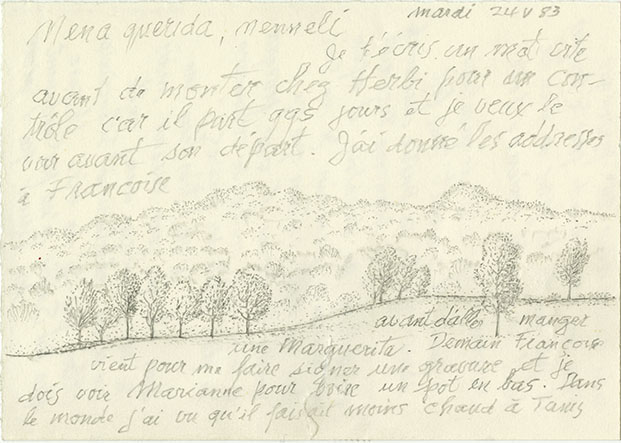 mardi 24 V 83
Mena querida, nenneli
Je t'écris un mot vite
avant de monter chez Herbi pour un con-
trôle car il part qqs jours et je veux le
voir avant son départ. J'ai donné les addresses
à Françoise
avant d'aller manger
une Marguerita. Demain Françoise
vient pour me faire signer une gravure et je
dois voir Marianne pour boire un pot en bas. Dans
le monde j'ai vu qu'il faisait moins chaud à Tunis